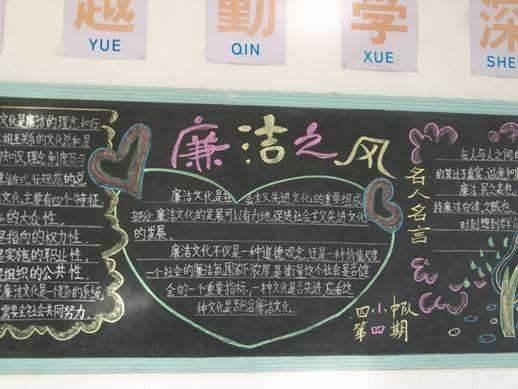 越 勤 学 深
YUE QIN XUE SHE
廉洁之风
文化是廉洁的理念、执行
相互关系的文化总和是
知识、理念、制度及与
文化主要有四个"特征
的大众性。
是指向的权力性。
实施的职业性,
组织的公共性。
廉洁文化是一个整体的系统
需要全社会共同努力。
廉洁文化是社会主义先进文化的重要组成
部分,廉洁文化的发展可以有力地促进社会主义先进文化
的发展。
廉洁文化不仅是一种道德观念,还是一种价值尺度,
一个社会的廉洁氛围浓不浓厚是衡量这个社会是否健
全的一个重要指标,一种文化是否先进,应看这
种文化是否包含廉洁文化。
名人名言
在人与人之间的
四小中队
第四期